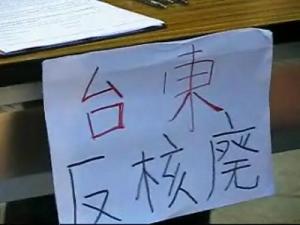 台東
反核廃